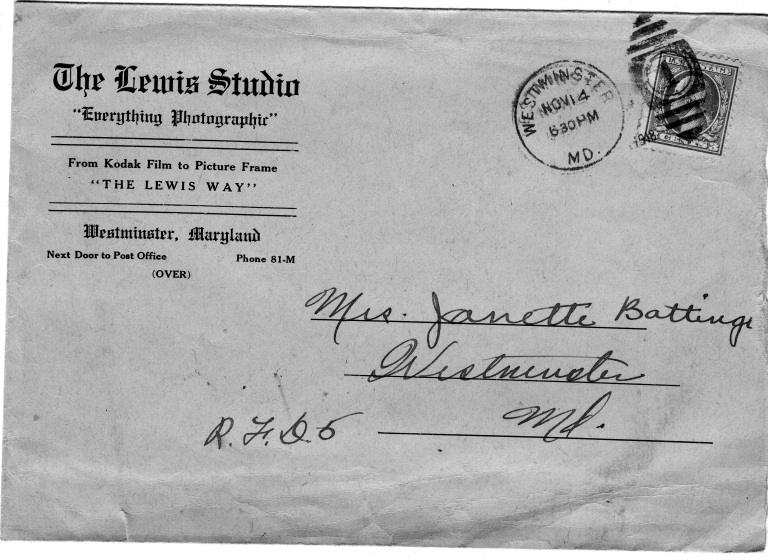 The Lewis Studio
"Everything Photographic"
From Kodak Film to Picture Frame
"THE LEWIS WAY"
Westminster, Maryland
Next Door to Post Office Phone 81-M
(OVER)
WESTMINSTER
NOV 14
6 30 PM
MD.
Mrs. Janette Battings
Westminster
Md.
R.F.D. 5